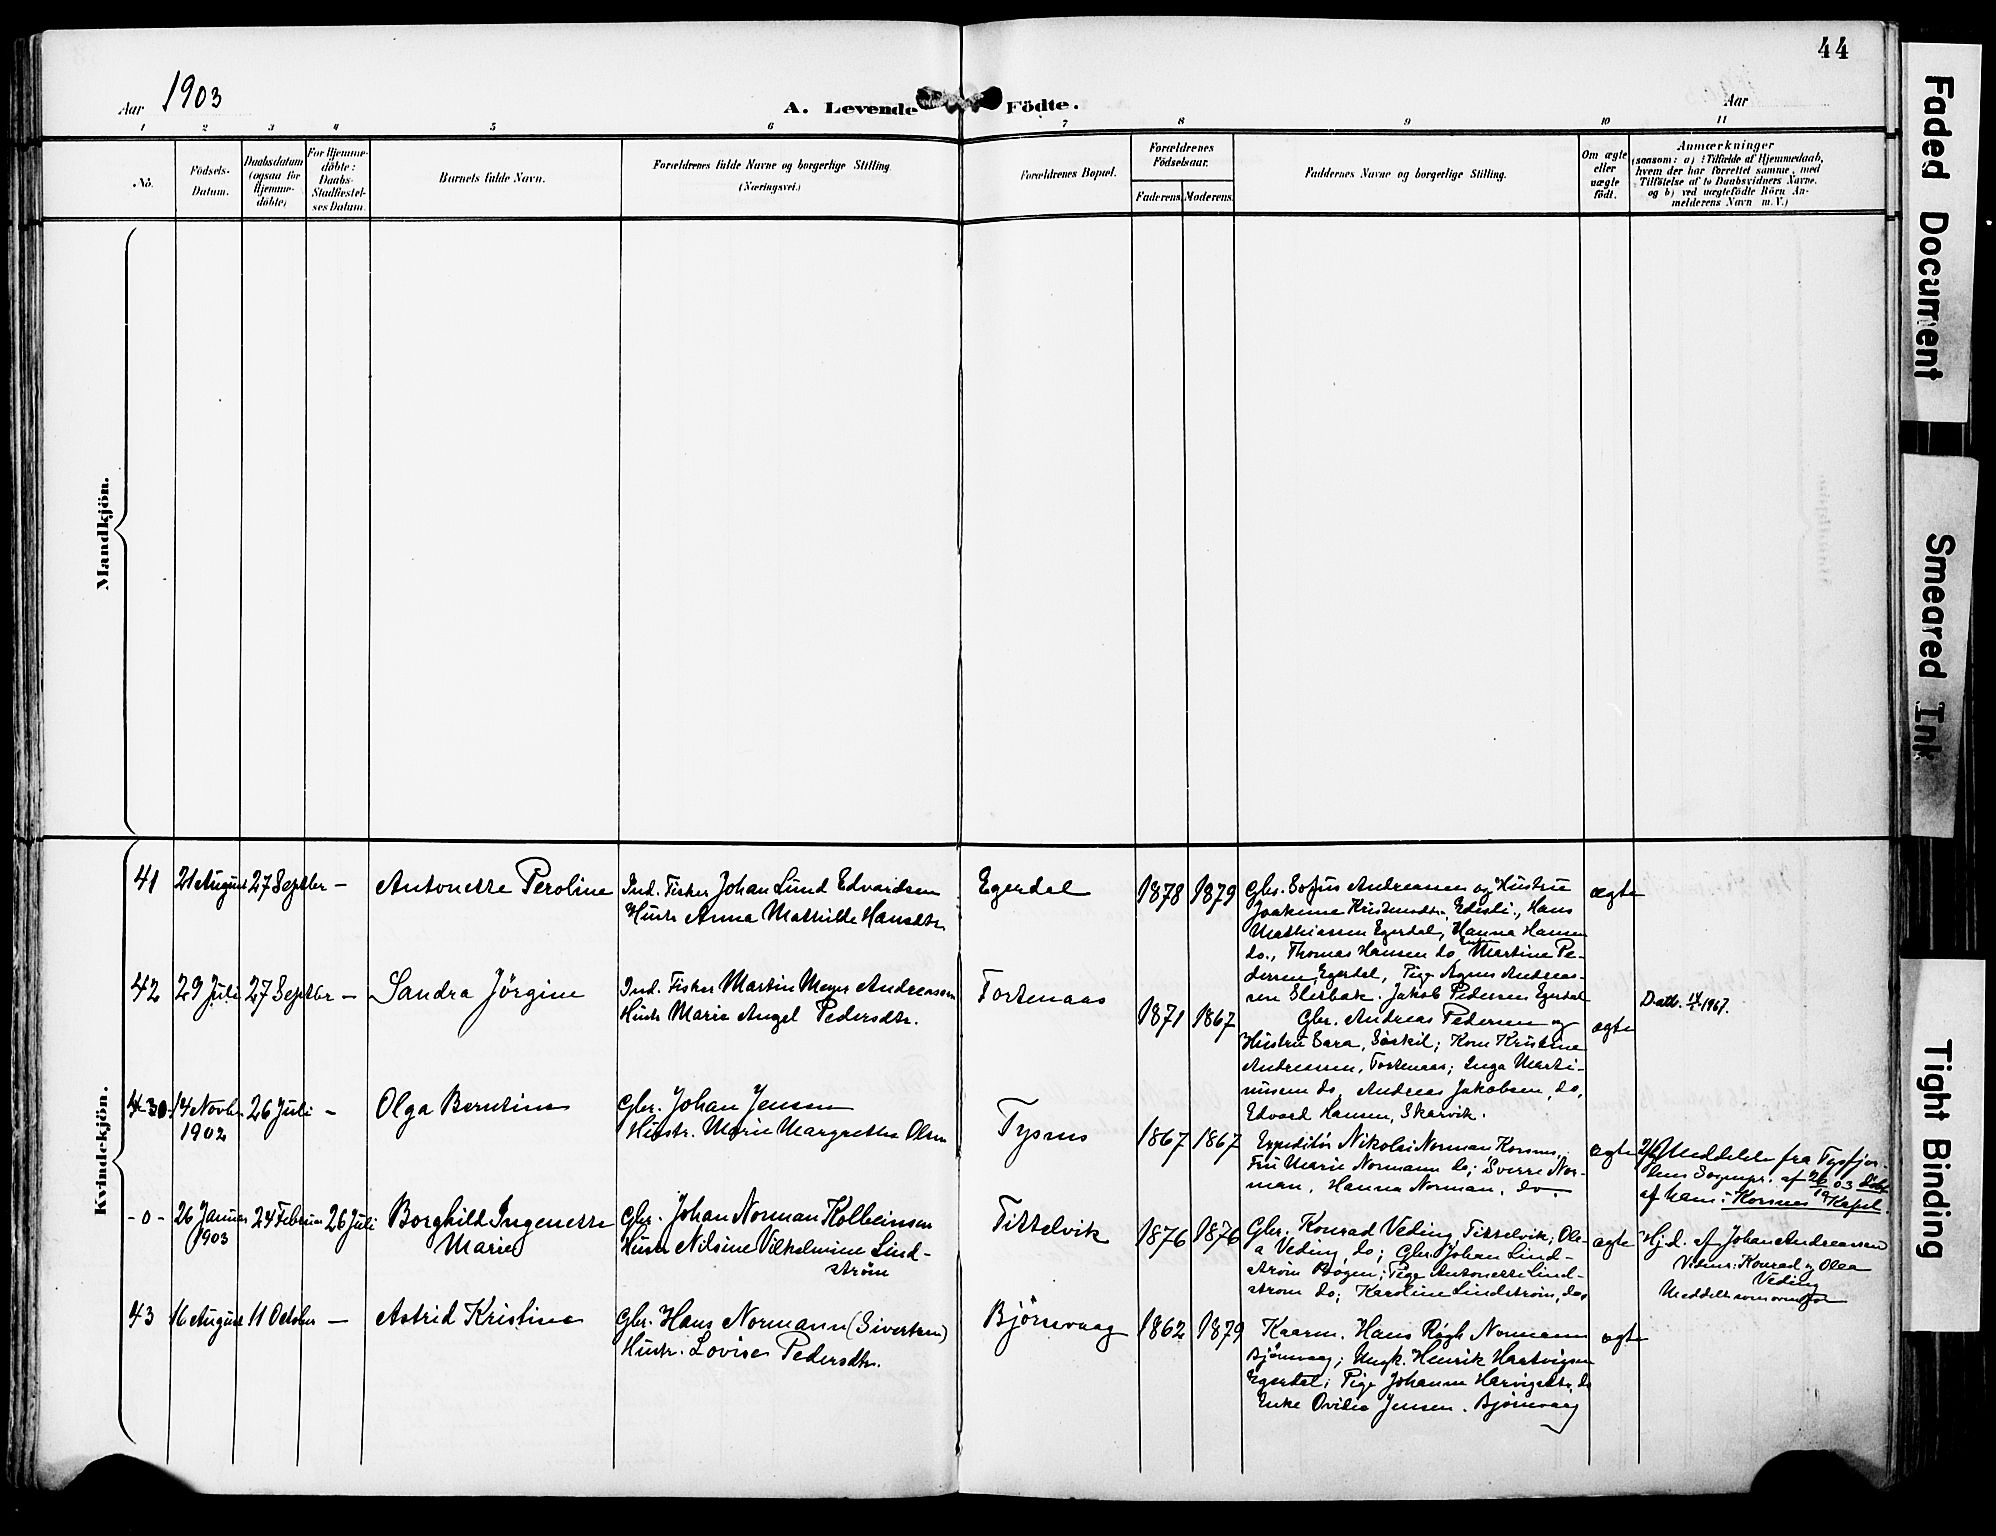 44
Aar 1903
A. Levende Födte.
Aar
1 2 3 4 5 6 7 8 9 10 11
No.
Födsels-
Datum.
Daabsdatum
(ogsaa for
Hjemme-
döbte)
For Hjemme-
döbte:
Daabs-
Stadfæstel-
ses Datum.
Barnets fulde Navn.
Forældrenes fulde Navne og borgerlige Stilling
(Næringsvei.)
Forældrenes Bopæl.
Forældrenes
Födselsaar.
Faderens Moderens
Faddernes Navne og borgerlige Stilling.
Om ægte
eller
uægte
födt.
Anmærkninger
(saasom: a) i Tilfælde af Hjemmedaab,
hvem der har forrettet samme, med
Tilföielse af to Daabsvidners Navne,
og b) ved uægtefödte Börn An-
melderens Navn m. V.)
Mandkjön.
Kvindekjön.
41 21 August 27 Septbr - Antonette Peroline
Ind. Fisker Johan Lund Edvardsen
Hustr Anna Mathilde Hansdtr
Egerdal 1878 1879
Gbr. Sofus Andreassen og Hustru
Hans
Mathiassen Egerdal, Hanna Hansen
do., Thomas Hansen do, Martine Pe-
dersen, Egerdal, Pige Agnes Andreas-
sen Jakob Pedersen Egerdal
ægte
42 29 Juli 27 Septbr - Sandra Jörgine
Ind. Fisker Martin Meyer Andreassen
Hustr Marie Angel Pedersdtr.
Fortenaas 1871 1867
Gbr. Andreas Pedersen og
Hustru Sara, Sörkil; Kone Kristine
Andreassen, Fortenaas; Inga Marti-
nussen do, Andreas Jakobsen, do,
Edvard Hansen, Skarvik.
ægte
Datt. 1967.
14 Novb. 26 Juli - Olga Berntine
1902
Gbr. Johan Jensen
Hustr. Marie Margrethe Olsen
Tysnes 1867 1867
Expeditör Nikolai Norman Korsnes,
Fru Marie Normann do; Sverre Nor-
man, Hanna Norman, do.
ægte
Meddelt fra Tysfjor-
dens Sognepr. af 03 döbt
af ham i Korsnes Kapel.
-0- 26 Januar 24 Februar 26 Juli Borghild Ingenette
903 Marie
Gbr. Johan Norman Kolbeinsen
Hustr Nilsine Vilhelmine Lind-
ström
Tittelvik 1876 1876
Gbr. Konrad Veding, Tittelvik; Ole-
a Veding, do; Gbr. Johan Lind-
ström Bögen; Pige Antonette Lind-
ström do; Karoline Lindström, do,
ægte
Hj.d. af Johan Andreassen
Vidner: Konrad og Olea
Veding
Meddelt som ovenfor
43 16 August 11 October - Astrid Kristine
Gbr. Hans Normann (Sivertsen)
Hustr. Lovise Pedersdtr.
Björnvaag 1862 1879
Kaarm. Hans Rögh Normann
Björnvaag; Ungk. Henrik Hartvigsen
Egerdal; Pige Johanne Harvigsdtr, do
Enke Ovidia Jensen. Björnvaag
ægte
Faded Document
Smeared Ink
Tight Binding